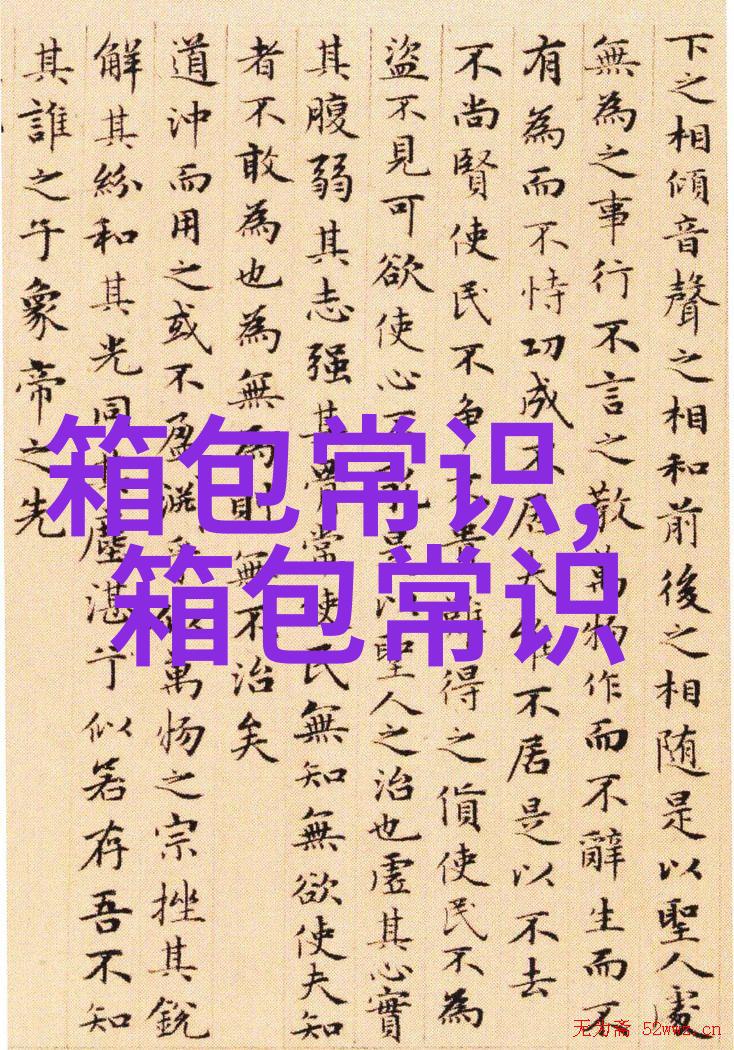 下之相傾音聲之相和前後之相随是以聖人處
無為之事行不言之教萬物作而不辭生而不
有為而不恃功成不居夫唯不居是以不去
不尚賢使民不争不貴難得之貨使民不為
盜不見可欲使心不乱是以聖人之治也虛其心實
其腹弱其志强其骨常使民無知無欲使夫知
者不敢為也為無為則無不治矣
道沖而用之或不盈淵乎似萬物之宗挫其銳
解其紛和其光同其塵湛兮似若存吾不知
其誰之子象帝之先
箱包常识,
箱包常识
无为斋 52wwz.cn